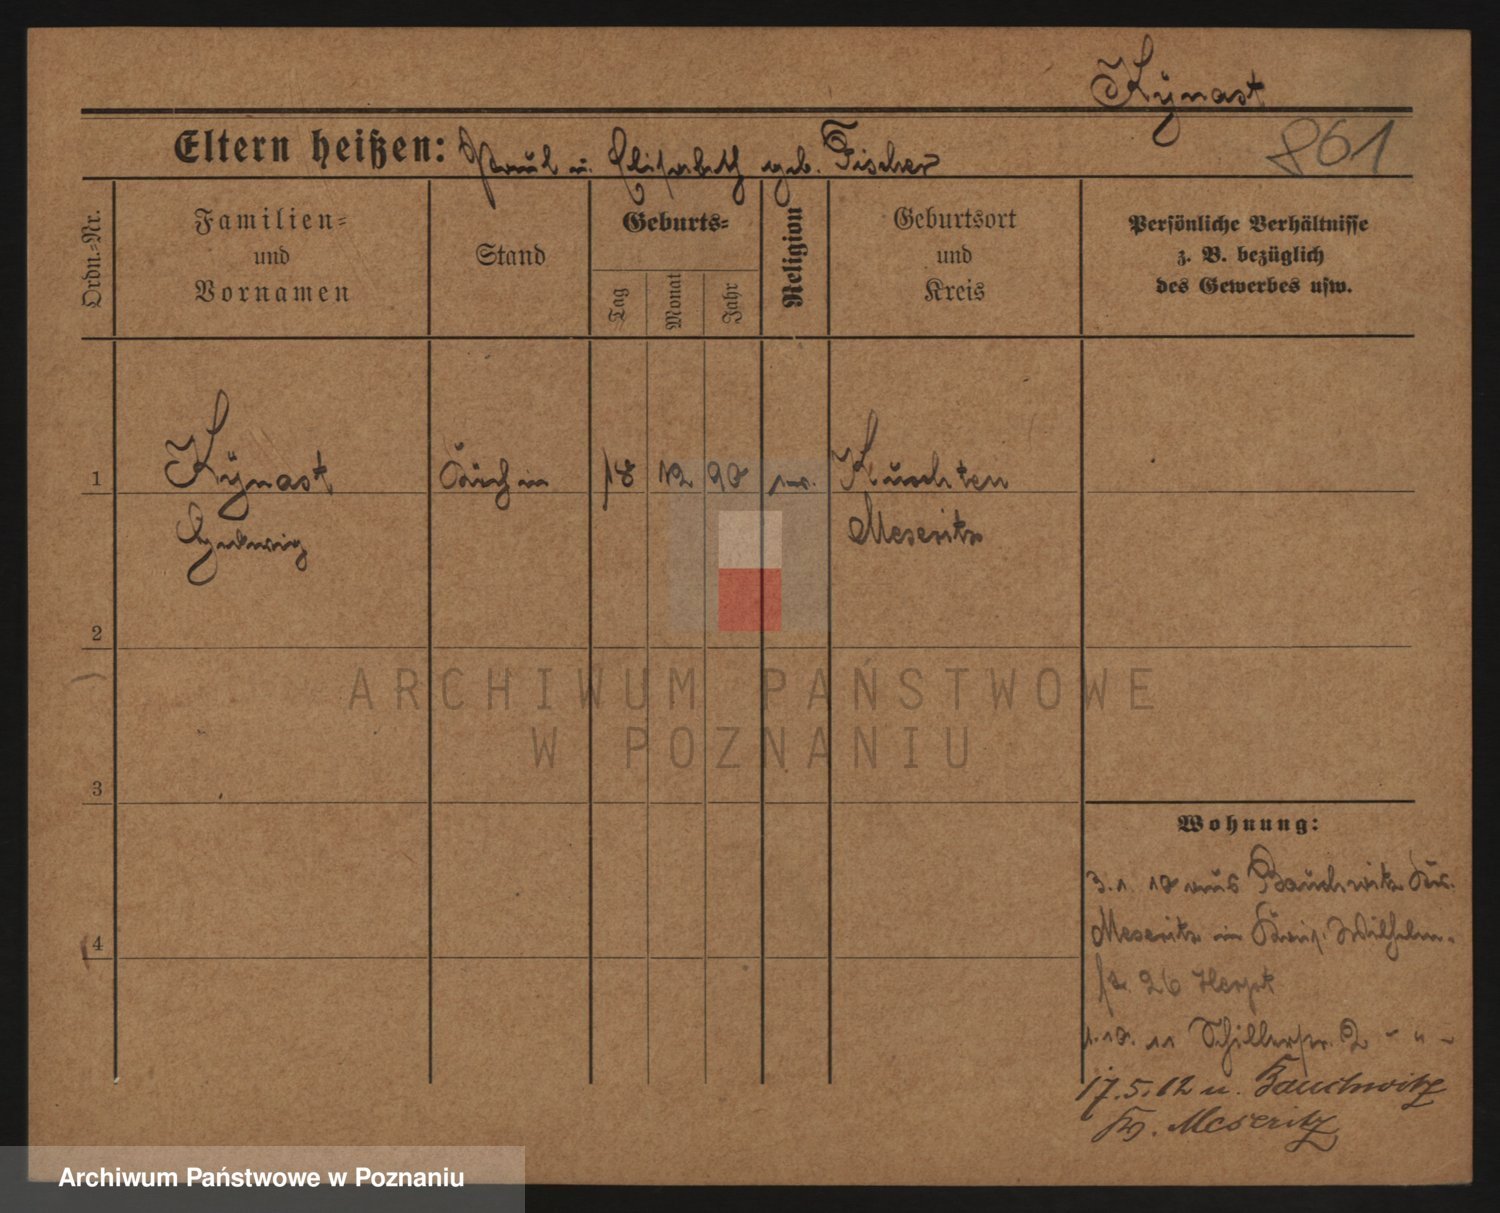 Kÿnast
861
Eltern heißen: Paul u. Elisabeth geb. Fischer
Ordn.-Nr.
Familien-
und
Vornamen
Stand
Geburts-
Tag
Monat
Jahr
Religion
Geburtsort
und
Kreis
Persönliche Verhältnisse
z. B. bezüglich
des Gewerbes usw.
1
Kÿnast
Hedwig
18
12
90
Kuschten
Meseritz
2
ARCHIWUM PAŃSTWOWE
W POZNANIU
3
Wohnung:
3. 1. 10 aus Bauchwitz Krs.
Meseritz in Wilhelm-
str. 26
1. 10. 11 Schillerstr. 2 - " -
4
17. 5. 12 n. Bauchwitz
Kr. Meseritz
Archiwum Państwowe w Poznaniu